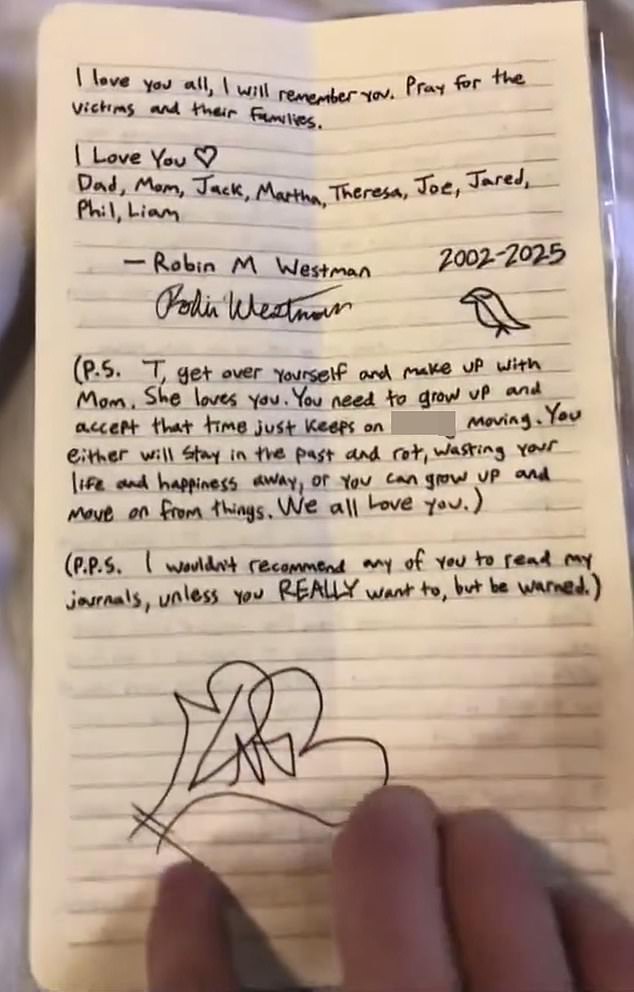 I love you all, I will remember you. Pray for the
victims and their families.
I Love You ♡
Dad, Mom, Jack, Martha, Theresa, Joe, Jared,
Phil, Liam
— Robin M Westman 2002-2025
Robin Westman
(P.S. T, get over yourself and make up with
Mom. She loves you. You need to grow up and
accept that time just keeps on moving. You
either will stay in the past and rot, wasting your
life and happiness away, or you can grow up and
move on from things. We all Love you.)
(P.P.S. I wouldn't recommend any of you to read my
journals, unless you REALLY want to, but be warned.)